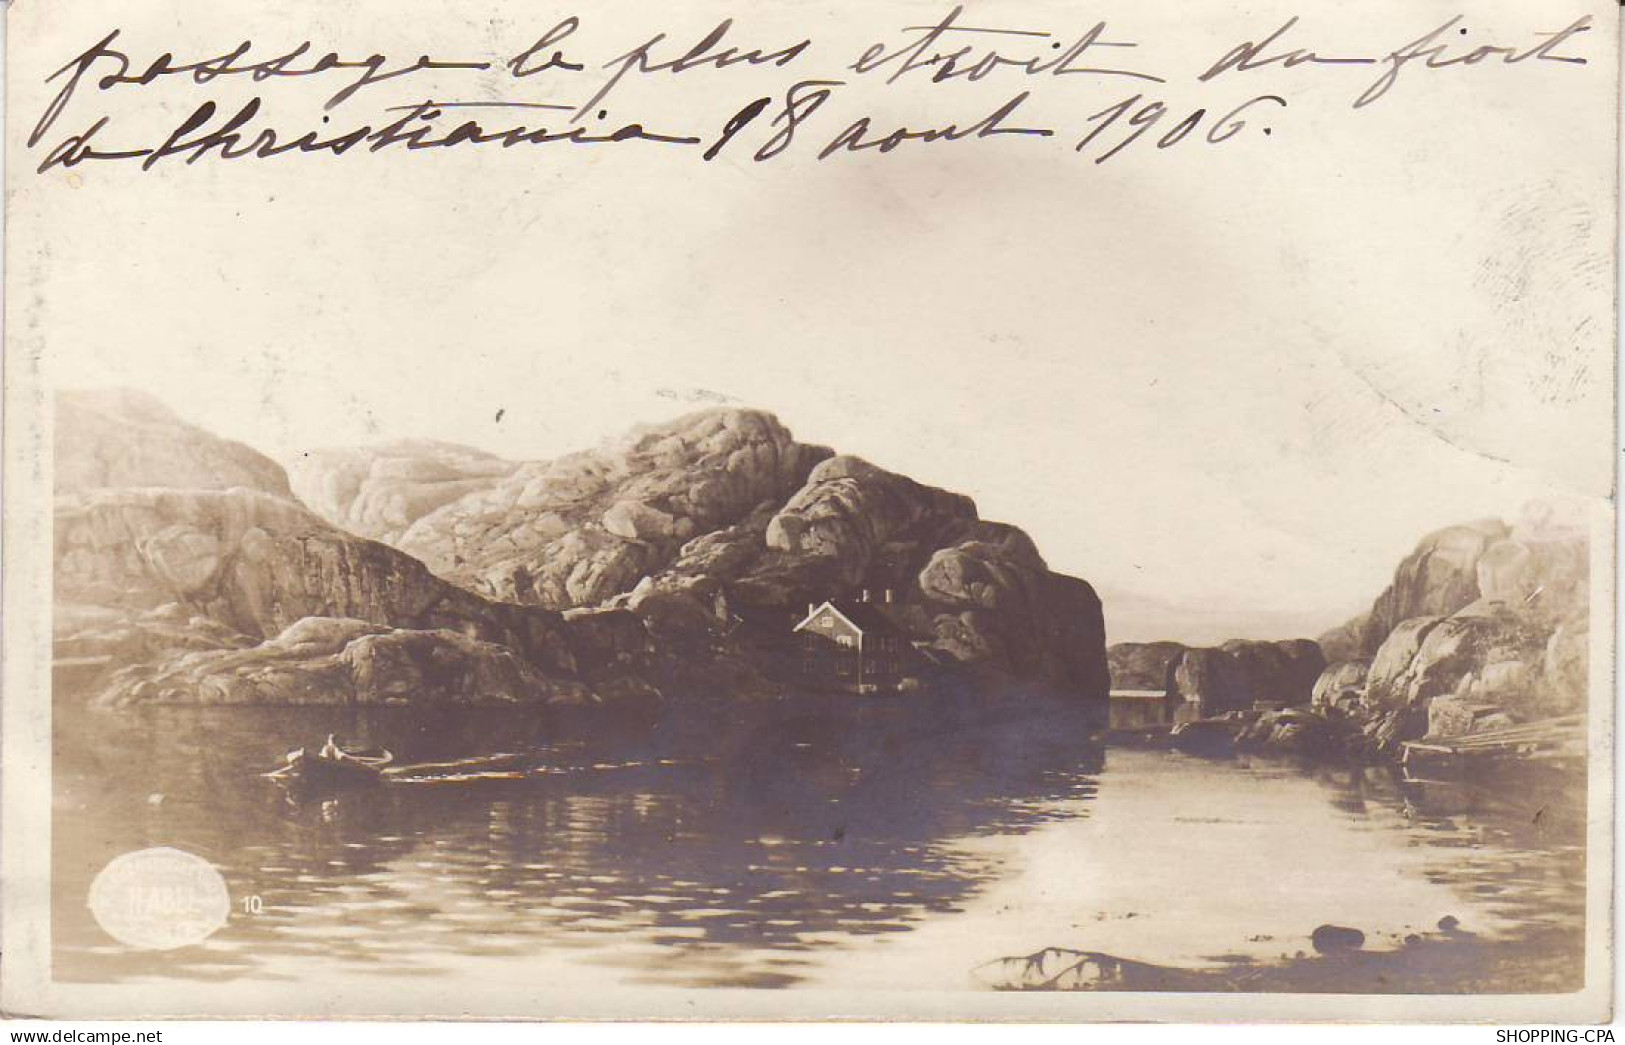 passage le plus etroit du fiort
de Christiania 18 aout 1906.
10
www.delcampe.net
microuest
SHOPPING-CPA